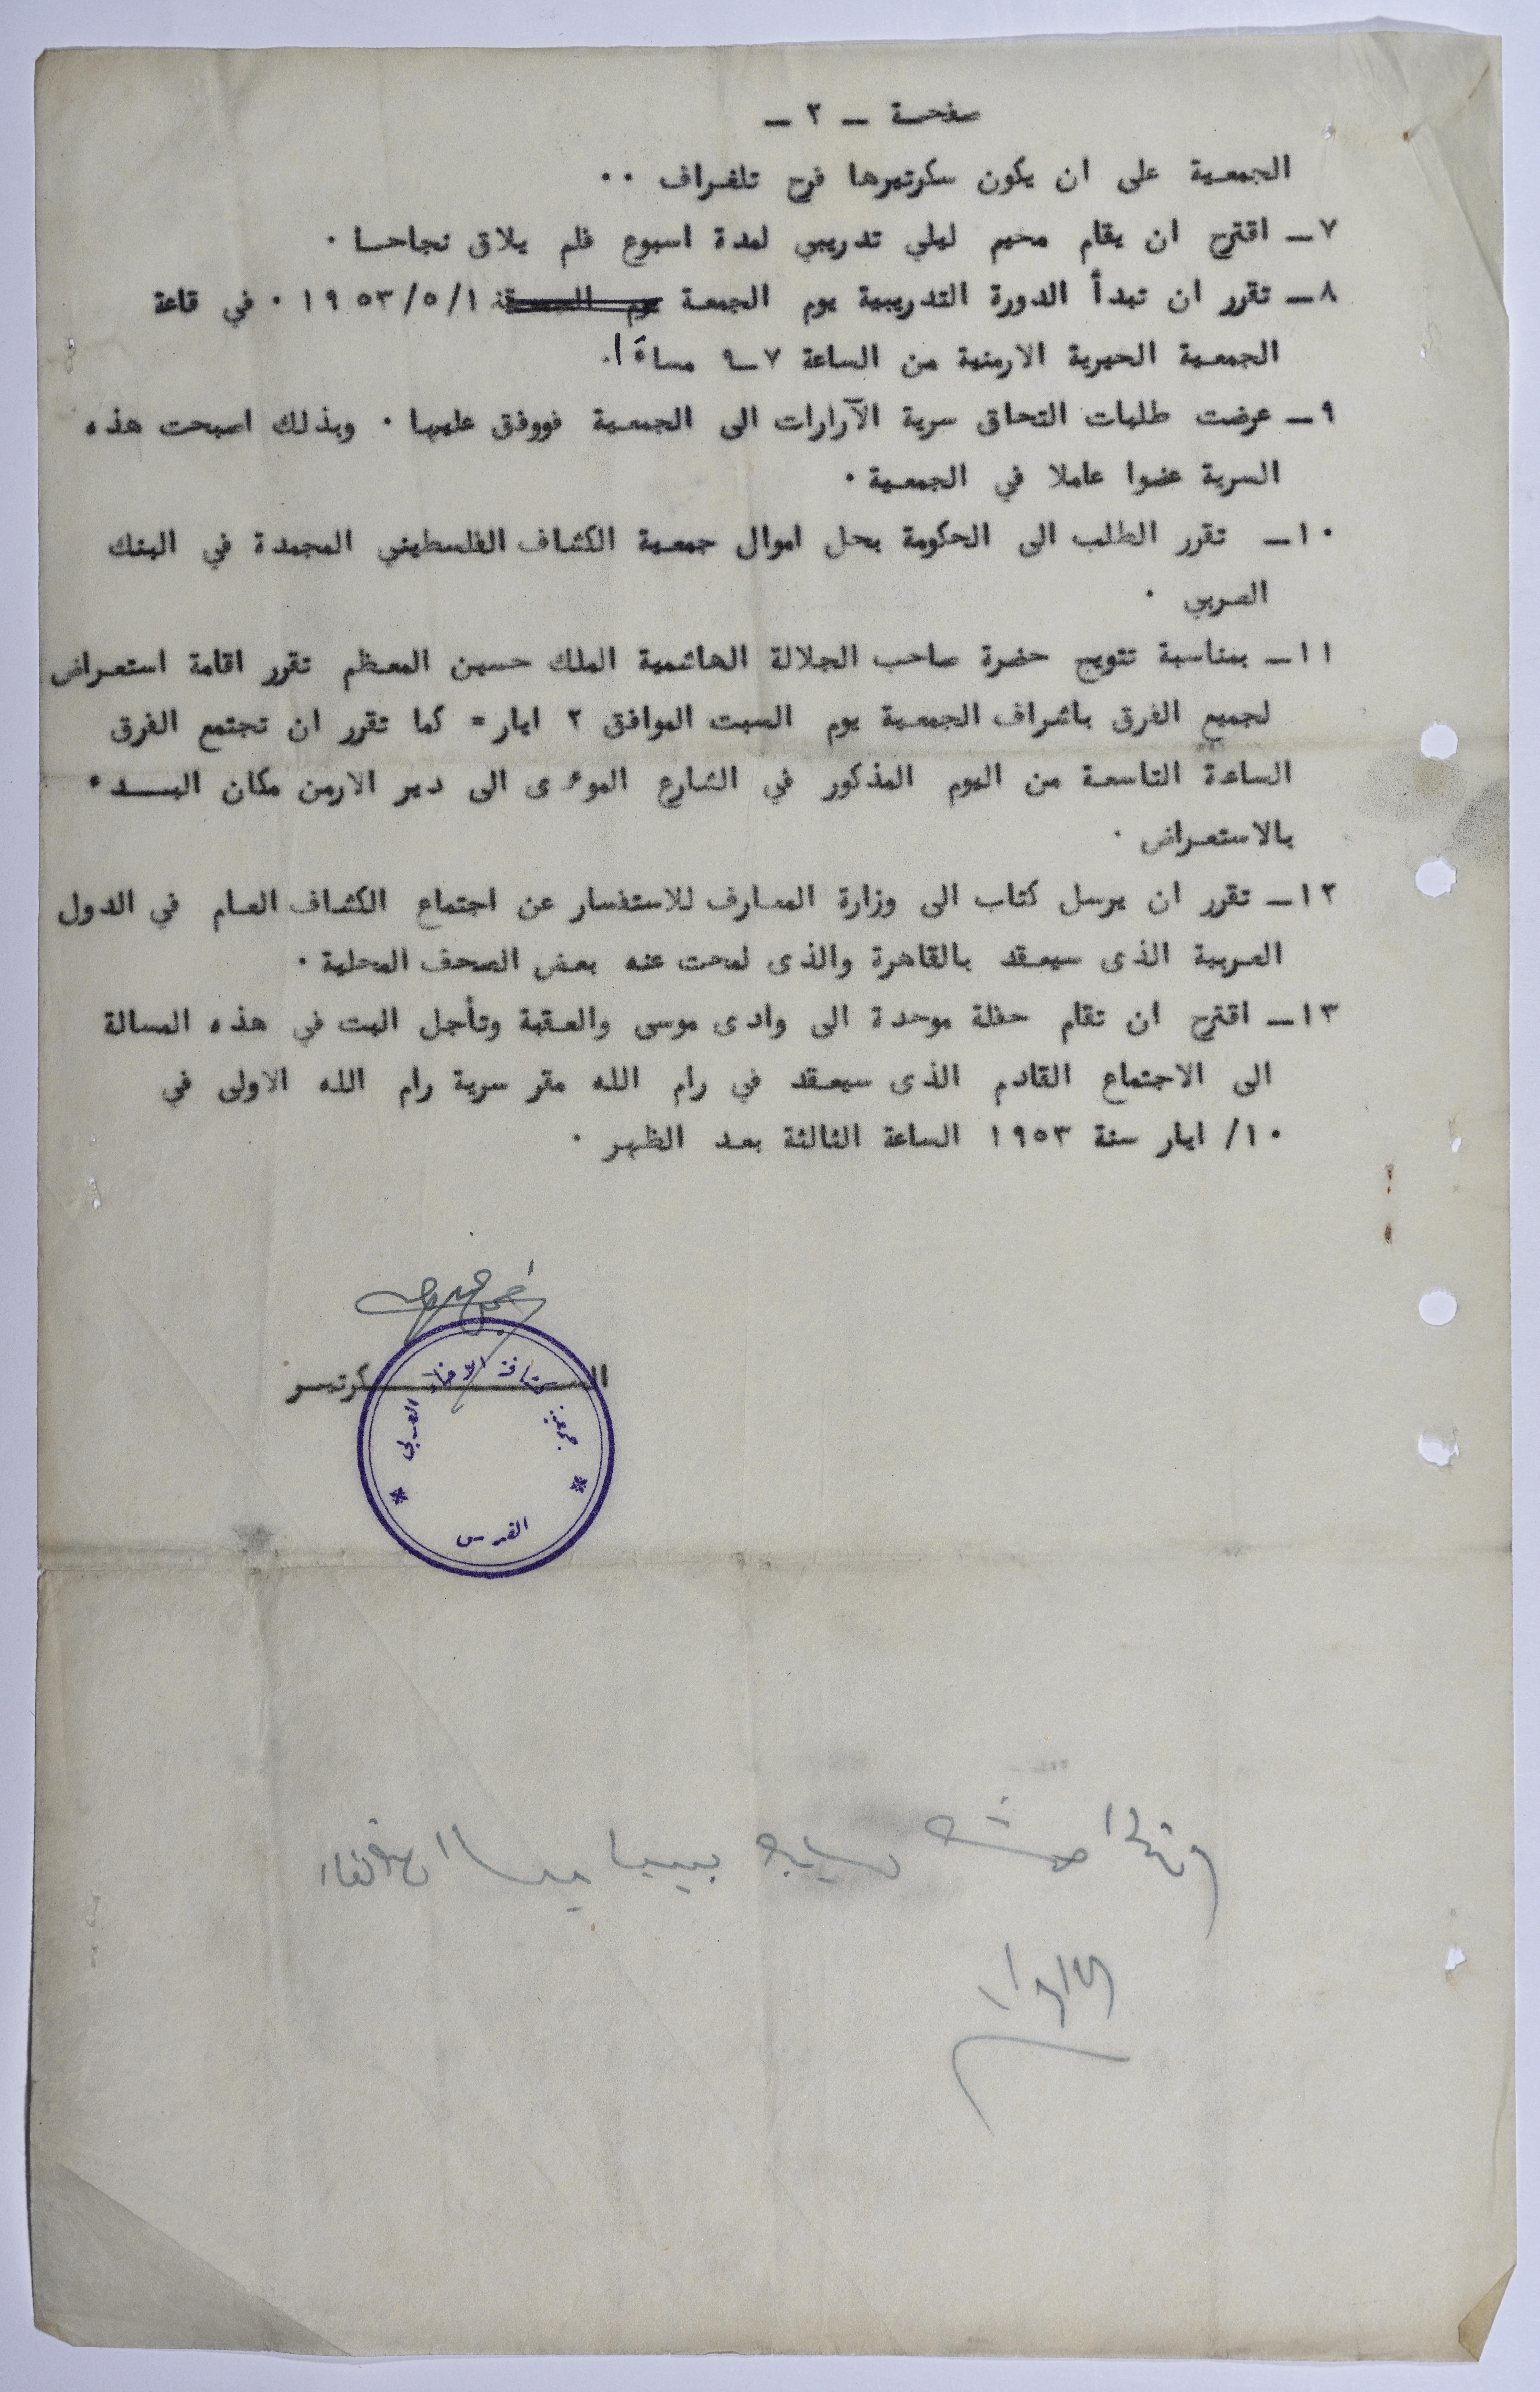 صفحـة ـ ٢ ـ
الجمعـية على ان يكون سكرتيرها فرح تلغـراف ٠٠
٧ـ اقترح ان يقام مخيم ليلي تدريبي لمدة اسبوع فلم يلاق نجاحـا ٠
٨ـ تقرر ان تبدأ الدورة التدريبية يوم الجمعـة يوم ١٩٥٣/٥/١ ٠ في قاعة
الجمعـية الخيرية الارمنية من الساعة ٧ـ٩ مساءً ا.
٩ـ عرضت طلبات التحاق سرية الآرارات الى الجمعـية فووفق عليها ٠ وبذلك اصبحت هذه
السرية عضوا عاملا في الجمعـية ٠
١٠ـ تقرر الطلب الى الحكومة بحل اموال جمعـية الكشاف الفلسطيني المجمدة في البنك
العـربي ٠
١١ـ بمناسبة تتويج حضرة صاحب الجلالة الهاشمية الملك حسين المعـظم تقرر اقامة استعـراض
لجميع الفرق باشراف الجمعـية يوم السبت الموافق ٢ ايار = كما تقرر ان تجتمع الفرق
الساعة التاسعـة من اليوم المذكور في الشارع الموءدى الى دير الارمن مكان البـــدء
بالاستعـراض ٠
١٢ـ تقرر ان يرسل كتاب الى وزارة المعـارف للاستفسار عن اجتماع الكشاف العـام في الدول
العـربية الذى سيعـقد بالقاهرة والذى لمحت عنه بعـض الصحف المحلية ٠
١٣ـ اقترح ان تقام حفلة موحدة الى وادى موسى والعـقبة وتأجل البت في هذه المسالة
الى الاجتماع القادم الذى سيعـقد في رام الله مقر سرية رام الله الاولى في
١٠/ ايار سنة ١٩٥٣ الساعة الثالثة بعـد الظهر ٠
الســــــــكرتيـر
جمعية كشافة الارض العربي
القدس